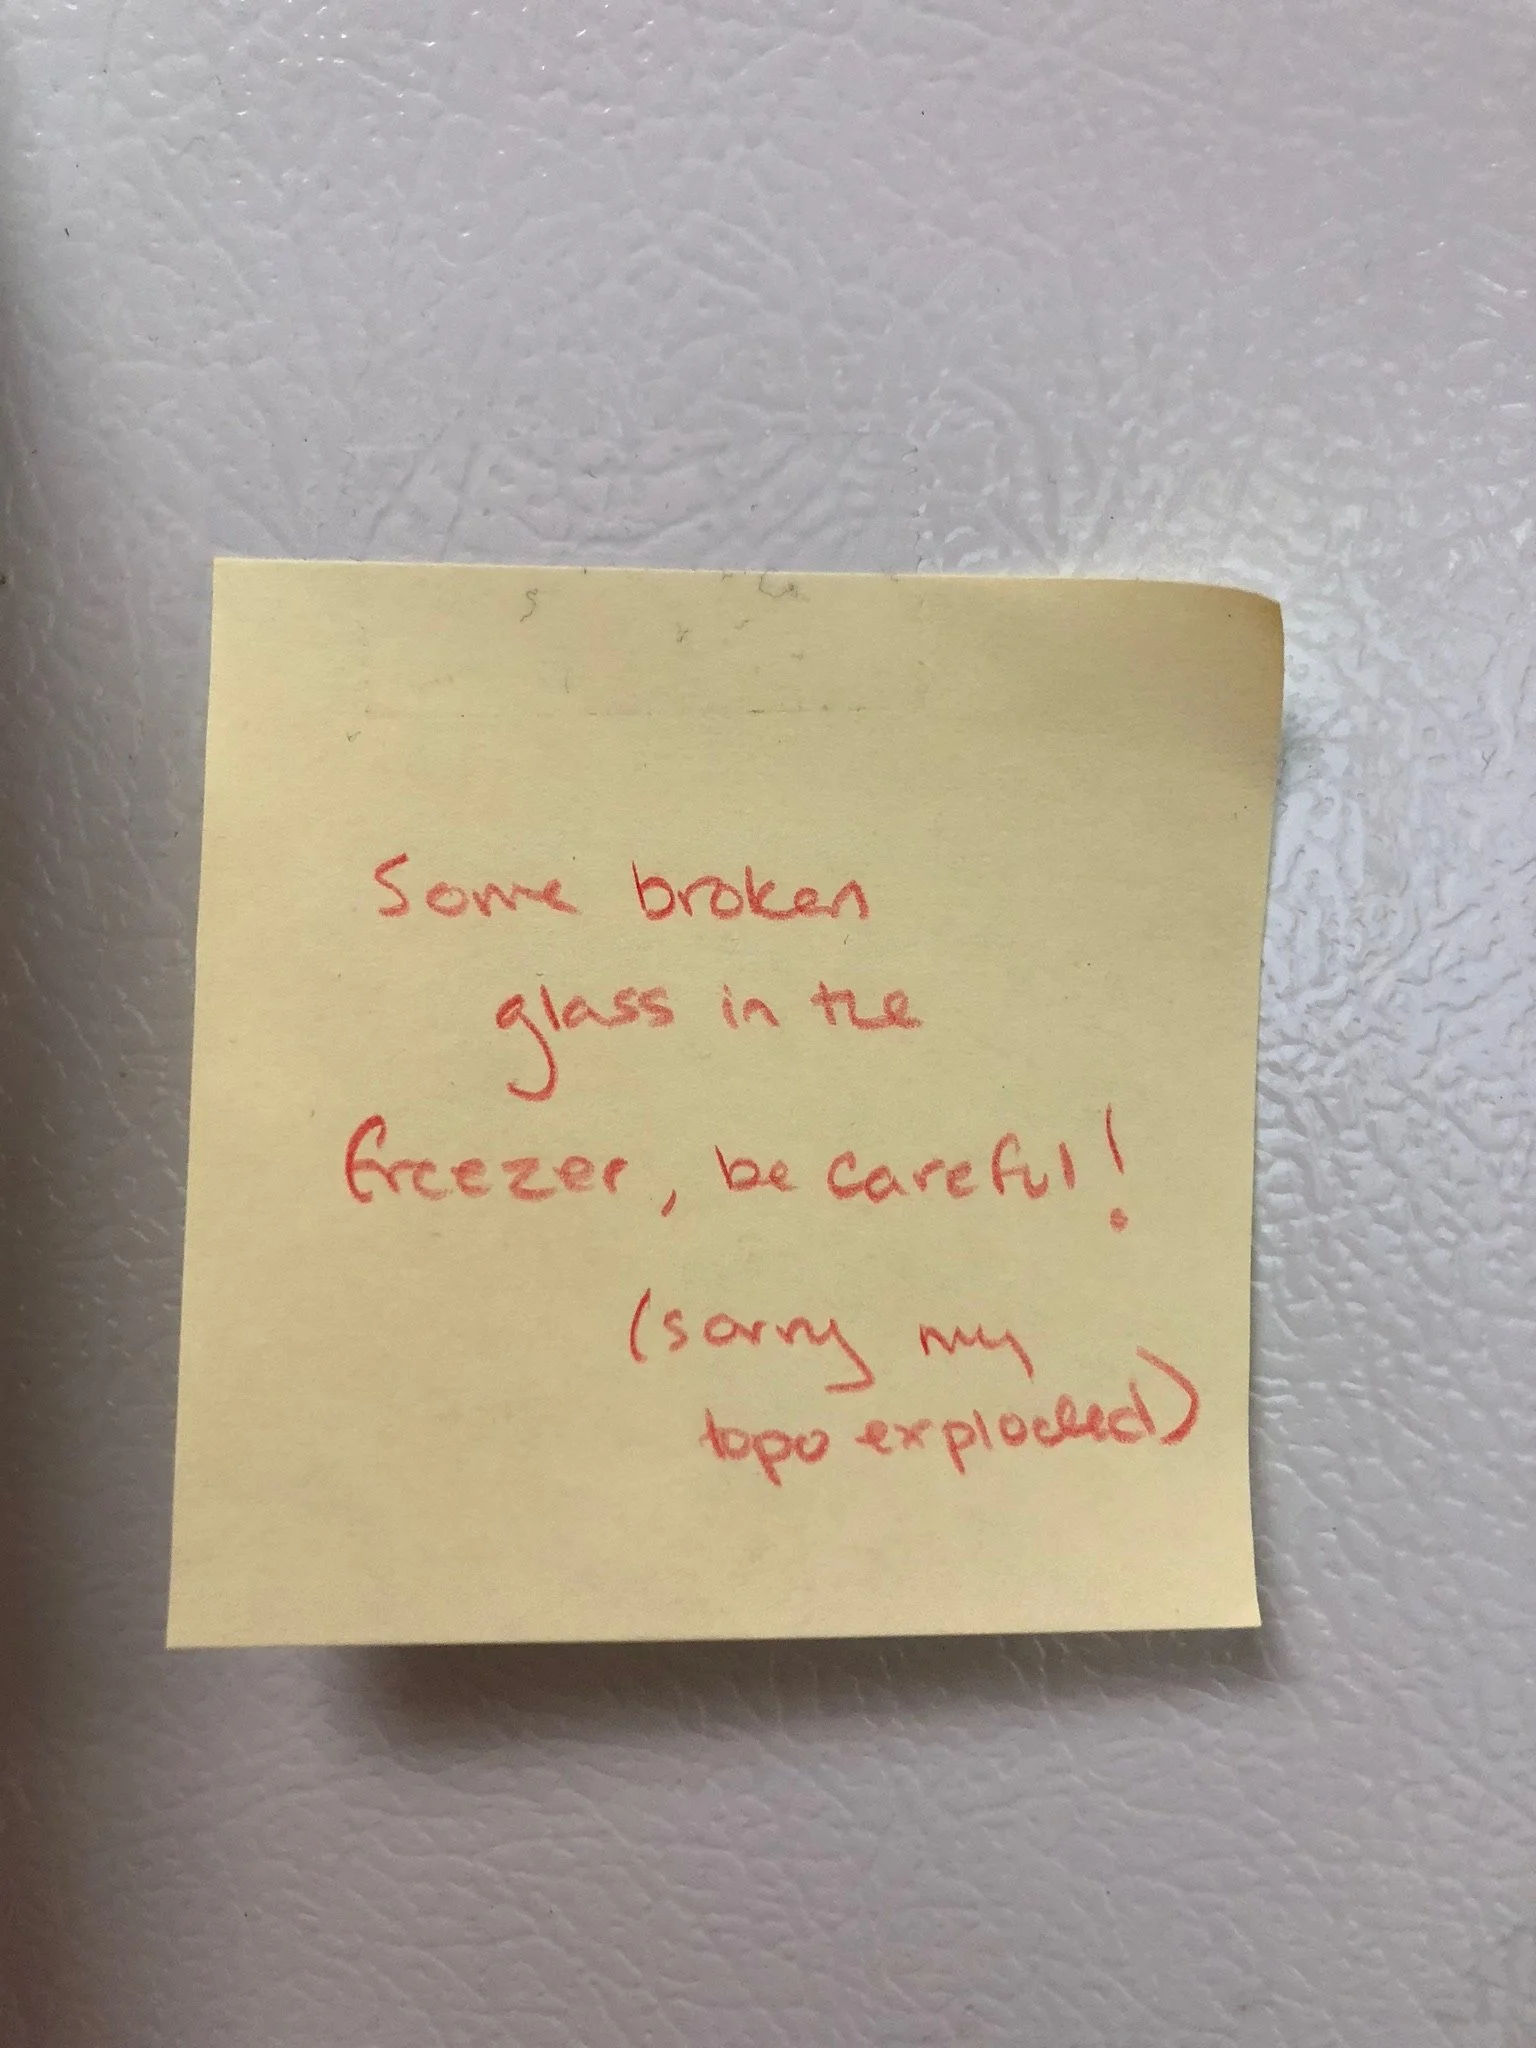 Some broken
glass in the
freezer, be careful!
(sorry my
topo exploded)